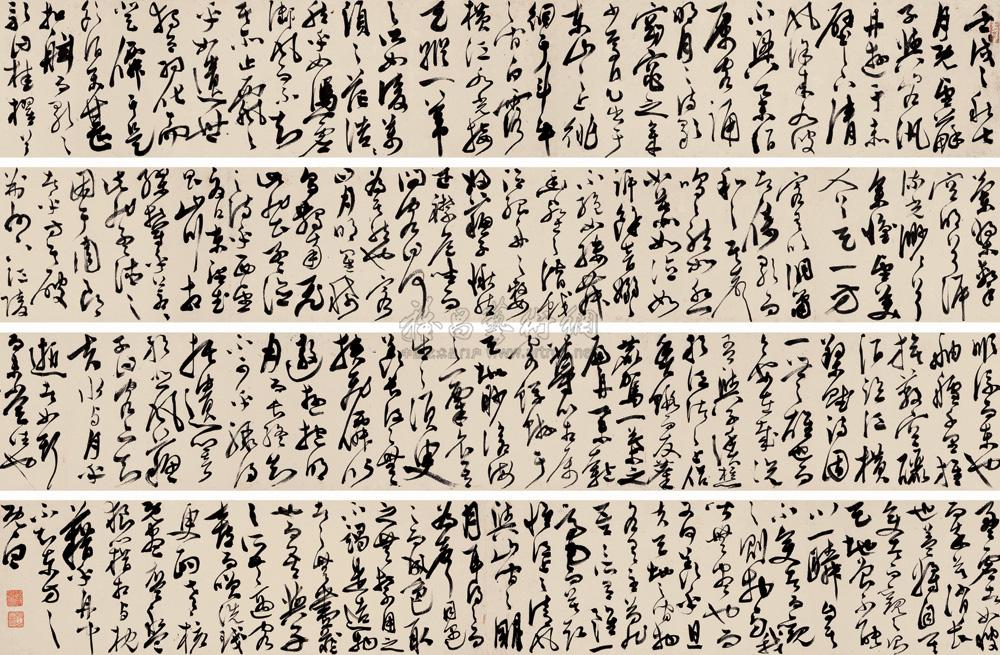 壬戌之秋七
月既望蘇
子與客泛
舟遊于赤
壁之下清
風徐來水波
不興舉酒
屬客誦
明月之詩歌
窈窕之章
少焉月出于
東山之上徘
徊于斗牛
之間白露
橫江水光接
天縱一葦
之所如凌萬
頃之茫然浩浩
乎如馮虛
御風而不知
其所止飄飄
乎如遺世
獨立羽化而
登僊于是
飲酒樂甚
扣舷而歌之
歌曰桂櫂兮
蘭槳擊
空明兮泝
流光渺渺兮
予懷望美
人兮天一方
客有吹洞簫
者倚歌而
和之其聲
嗚嗚然如怨
如慕如泣如
訴餘音嫋嫋
不絕如縷舞
幽壑之潛蛟
泣孤舟之嫠
婦蘇子愀然
正襟危坐而
問客曰何
為其然也客
曰月明星稀
烏鵲南飛
此非曹孟德
之詩乎西望
夏口東望武
昌山川相
繆鬱乎蒼蒼
此非孟德之
困于周郎
者乎方其破
荊州下江陵
順流而東也
舳艫千里旌
旗蔽空釃
酒臨江橫
槊賦詩固
一世之雄也而
今安在哉況
吾與子漁樵
於江渚之上侶
魚蝦而友麋
鹿駕一葉之
扁舟舉匏
尊以相屬
寄蜉蝣于
天地渺滄海
之一粟哀吾
生之須臾
羨長江之無
窮挾飛僊以
遨遊抱明
月而長終知
不可乎驟得
托遺響
於悲風蘇
子曰客亦知
夫水與月乎
逝者如斯
而未嘗往也
盈虛者如彼
而卒莫消長
也蓋將自其
變者而觀之則
天地曾不能
以一瞬自其
不變者而觀
之則物與我
皆無盡也而
又何羨乎且
夫天地之間物
各有主苟非
吾之所有雖一
毫而莫取
惟江上之清風
與山間之明
月耳得之而
為聲目遇
之而成色取
之無禁用之
不竭是造物
者之無盡藏
也而吾與子
之所共適客
喜而笑洗盞
更酌肴核
既盡杯盤
狼藉相與枕
藉乎舟中
不知東方之
既白